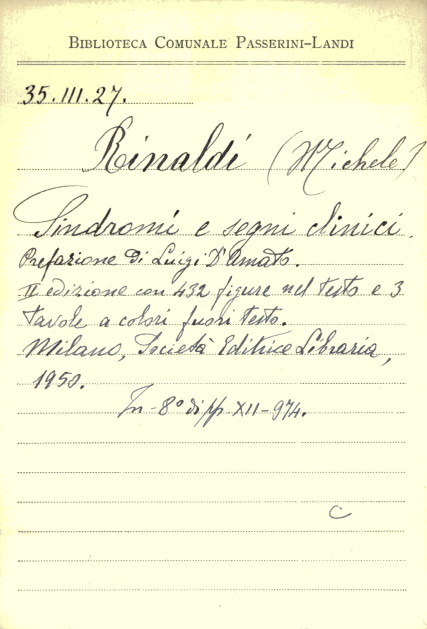 BIBLIOTECA COMUNALE PASSERINI-LANDI
35.III.27.
Rinaldi (Michele)
Sindromi e segni clinici.
Prefazione di Luigi D'Amato.
II edizione con 432 figure nel testo e 3
tavole a colori fuori testo.
Milano, Società Editrice Libraria,
1950.
In-8° di pp XII-974.
C